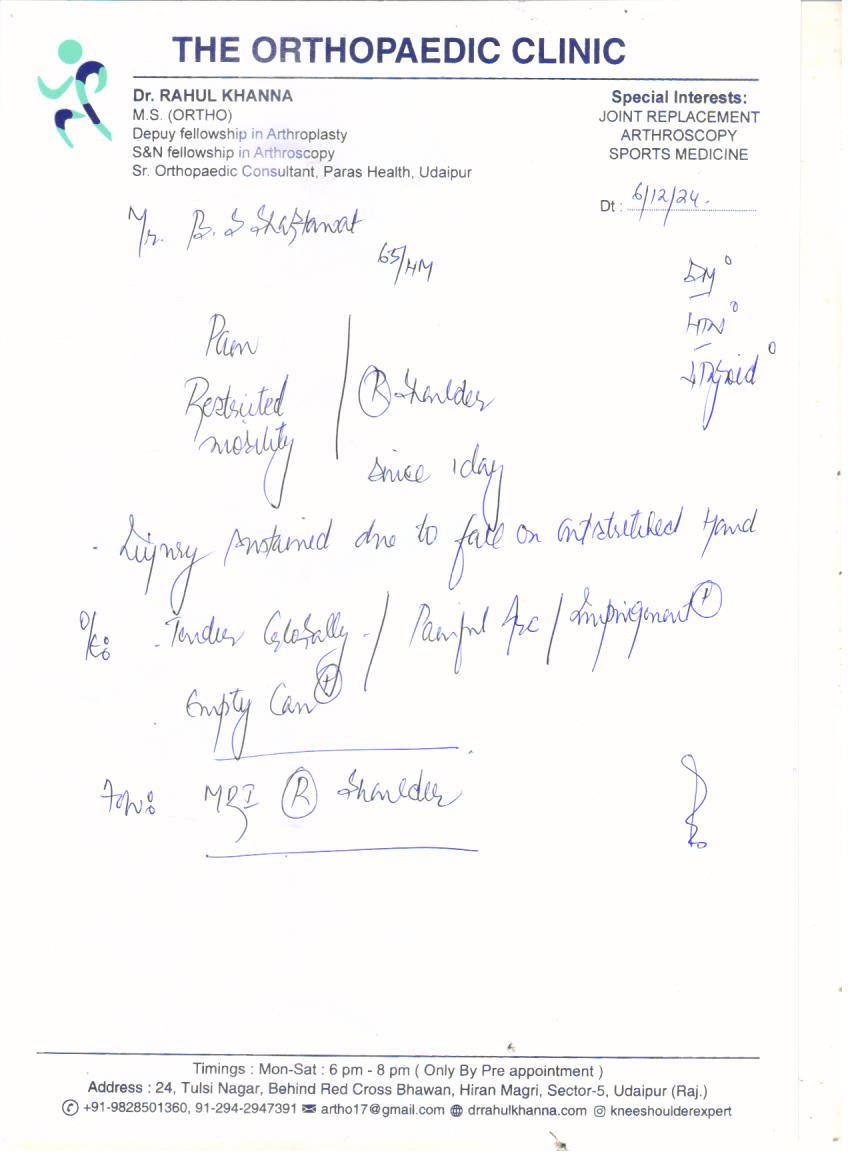 THE ORTHOPAEDIC CLINIC
Dr. RAHUL KHANNA
M.S. (ORTHO)
Depuy fellowship in Arthroplasty
S&N fellowship in Arthroscopy
Sr. Orthopaedic Consultant, Paras Health, Udaipur
Special Interests:
JOINT REPLACEMENT
ARTHROSCOPY
SPORTS MEDICINE
Dt : 6/12/24.
Mr. B. S
65/M
DM°
HTN°
Thyroid°
Pain
Restricted
mobility
(R) Shoulder
since 1 day
- Injury sustained due to fall on outstretched Hand
O/E: - Tender Globally - / Painful Arc / Impingement (+)
Empty Can (+)
Adv: MRI (R) Shoulder
Timings : Mon-Sat : 6 pm - 8 pm ( Only By Pre appointment )
Address : 24, Tulsi Nagar, Behind Red Cross Bhawan, Hiran Magri, Sector-5, Udaipur (Raj.)
+91-9828501360, 91-294-2947391 artho17@gmail.com drrahulkhanna.com kneeshoulderexpert